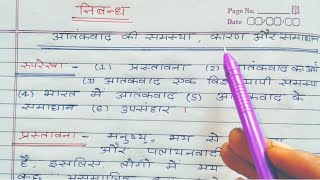 Page No.
Date
निबन्ध
आतंकवाद की समस्या, कारण और समाधान
रूपरेखा - (1) प्रस्तावना (2) आतंकवाद का अर्थ
(3) आतंकवाद एक विश्व व्यापी समस्या
(4) भारत में आतंकवाद (5) आतंकवाद के
समाधान (6) उपसंहार ।
प्रस्तावना - मनुष्य, भय से
और पलायनवादी
है, इसलिए लोगों में भय